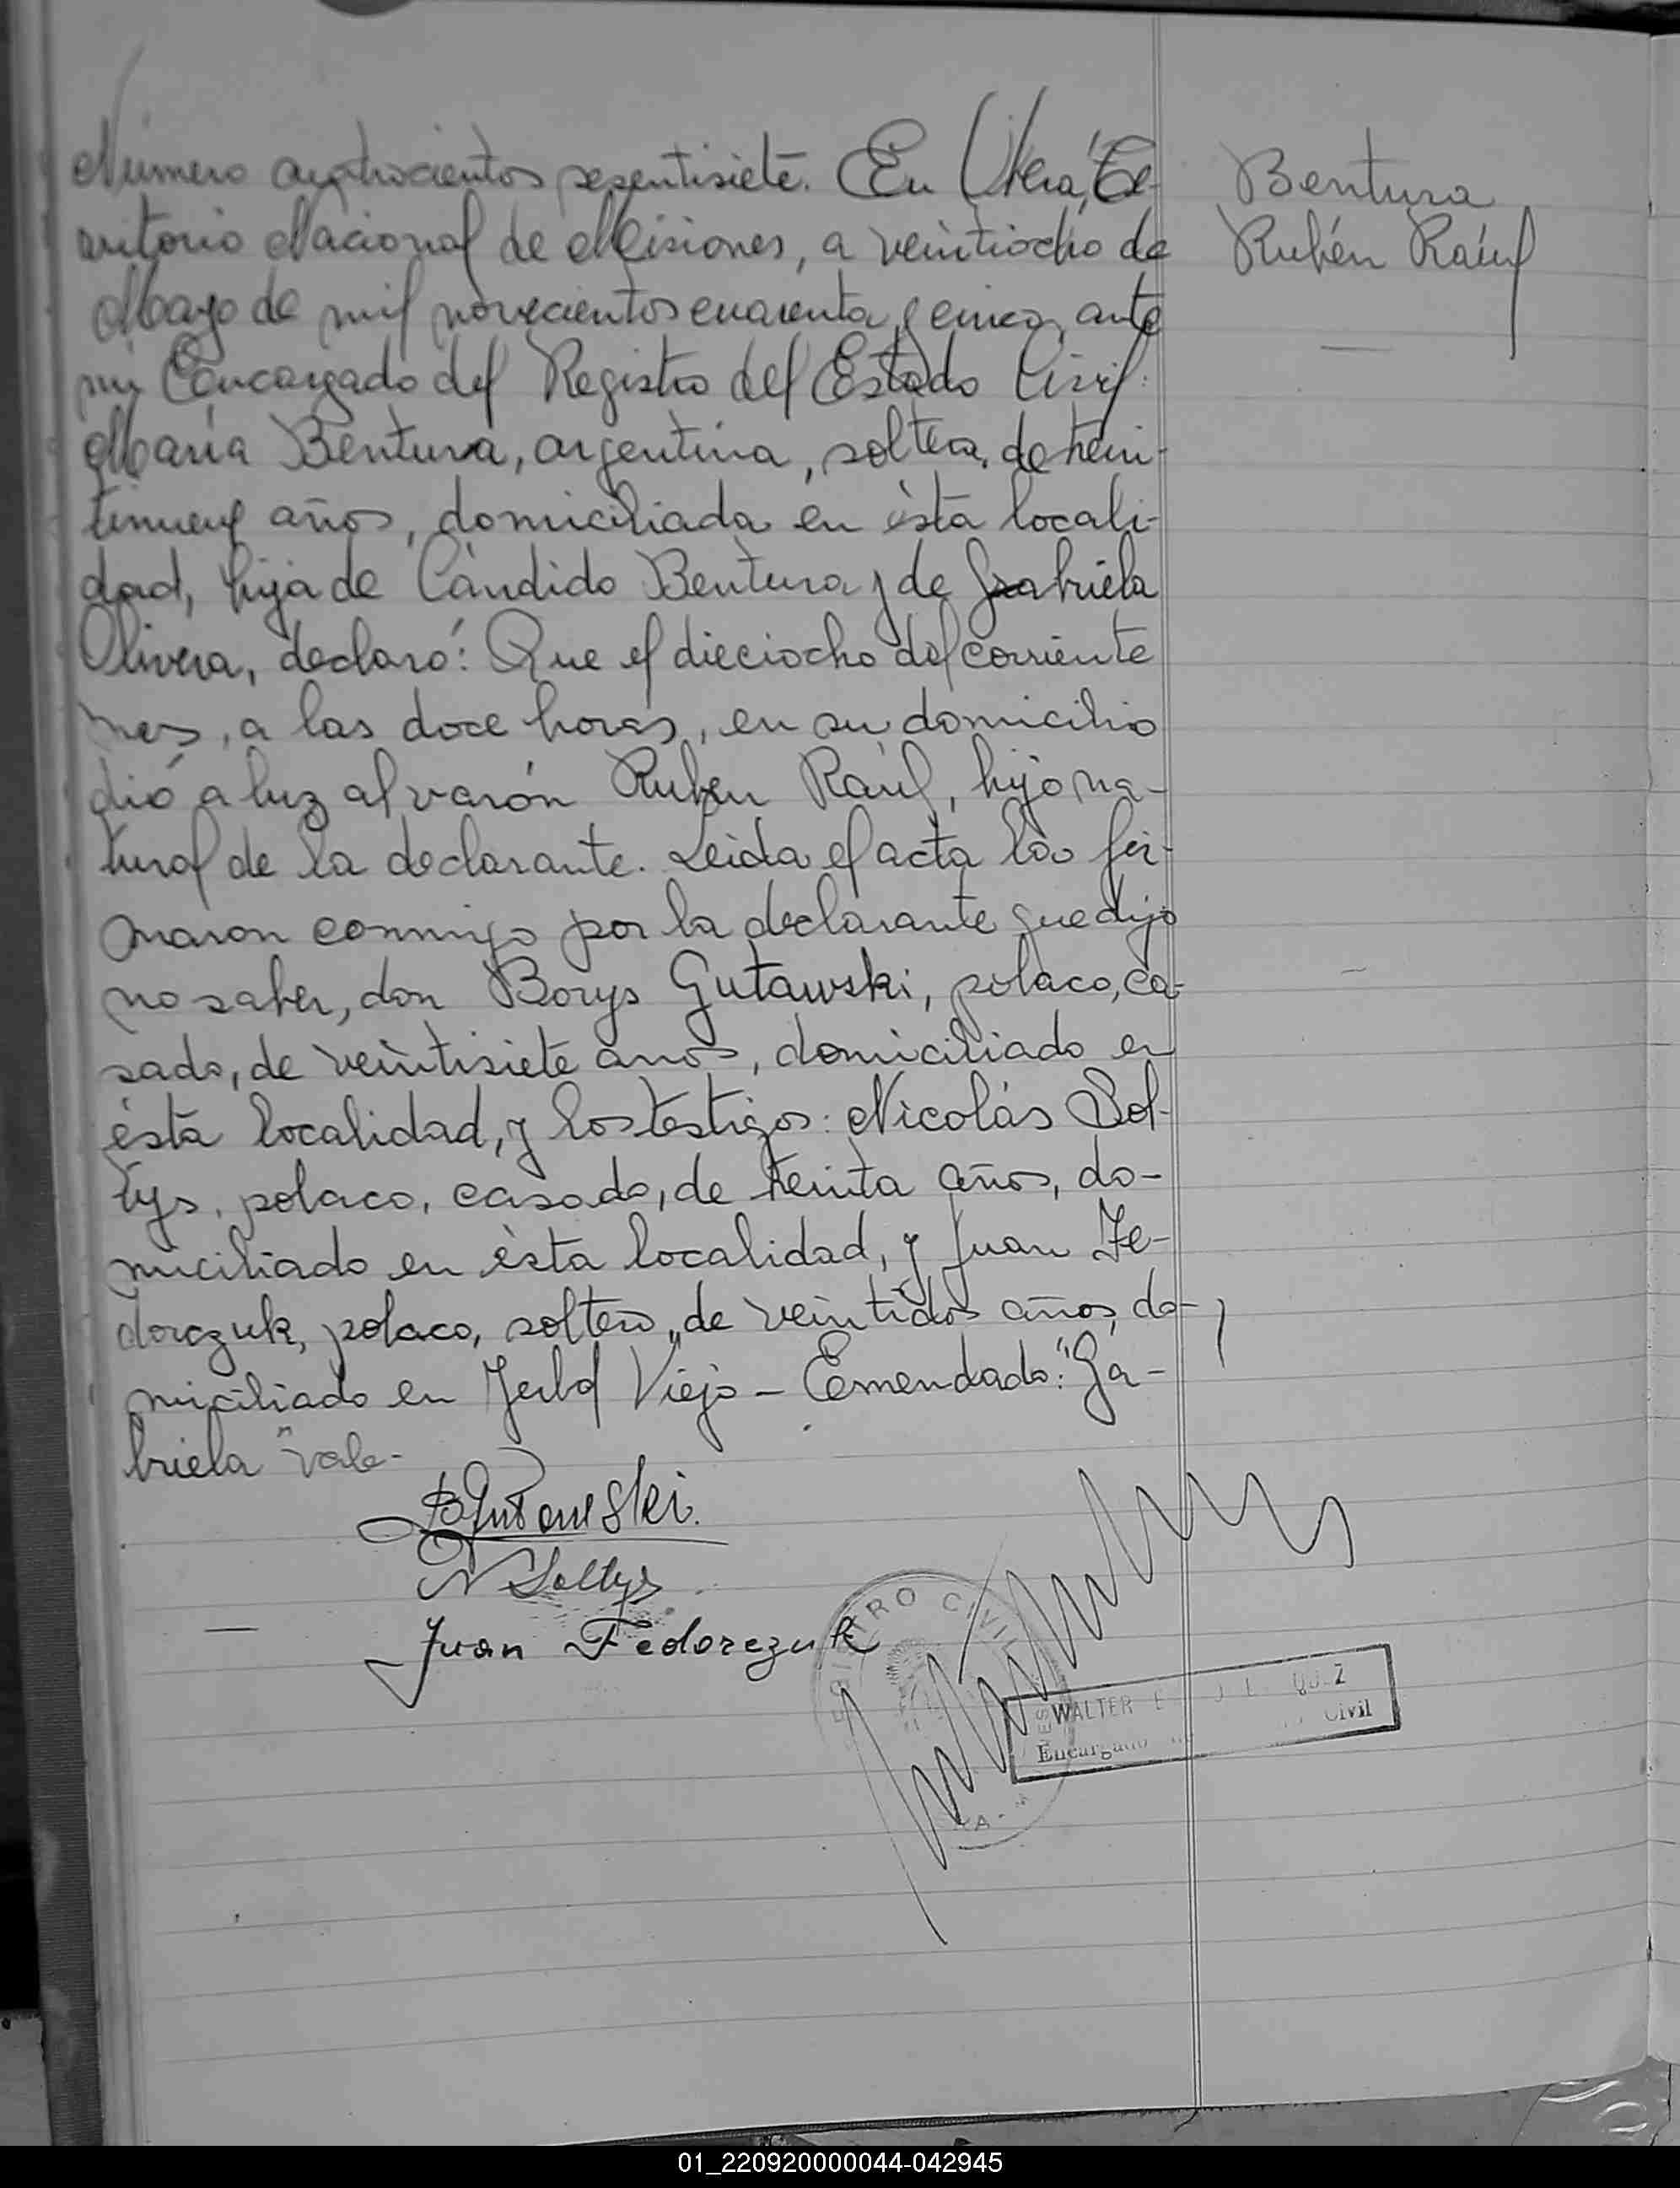 Número cuatrocientos sesentisiete. En Overá, Te-
rritorio Nacional de Misiones, a veintiocho de
Mayo de mil novecientos cuarenta y cinco, ante
mí Encargado del Registro del Estado Civil:
María Bentura, argentina, soltera, de vein-
tinueve años, domiciliada en ésta locali-
dad, hija de Cándido Bentura y de Gabriela
Olivera, declaró: Que el dieciocho del corriente
mes, a las doce horas, en su domicilio
dió a luz al varón Ruben Raúl, hijo na-
tural de la declarante. Leida el acta la fir-
maron conmigo por la declarante que dijo
no saber, don Borys Gutawski, polaco, ca-
sado, de veintisiete años, domiciliado en
ésta localidad, y los testigos: Nicolás Sol-
tys, polaco, casado, de treinta años, do-
miciliado en ésta localidad, y Juan Fe-
dorczuk, polaco, soltero, de veintidos años, do-
miciliado en Yerbal Viejo - Enmendado: "Ga-
briela" vale-
Bentura
Rubén Raúl
N Soltys
Juan Fedorczuk
REGISTRO CIVIL
WALTER E
Encargado Civil
01_220920000044-042945